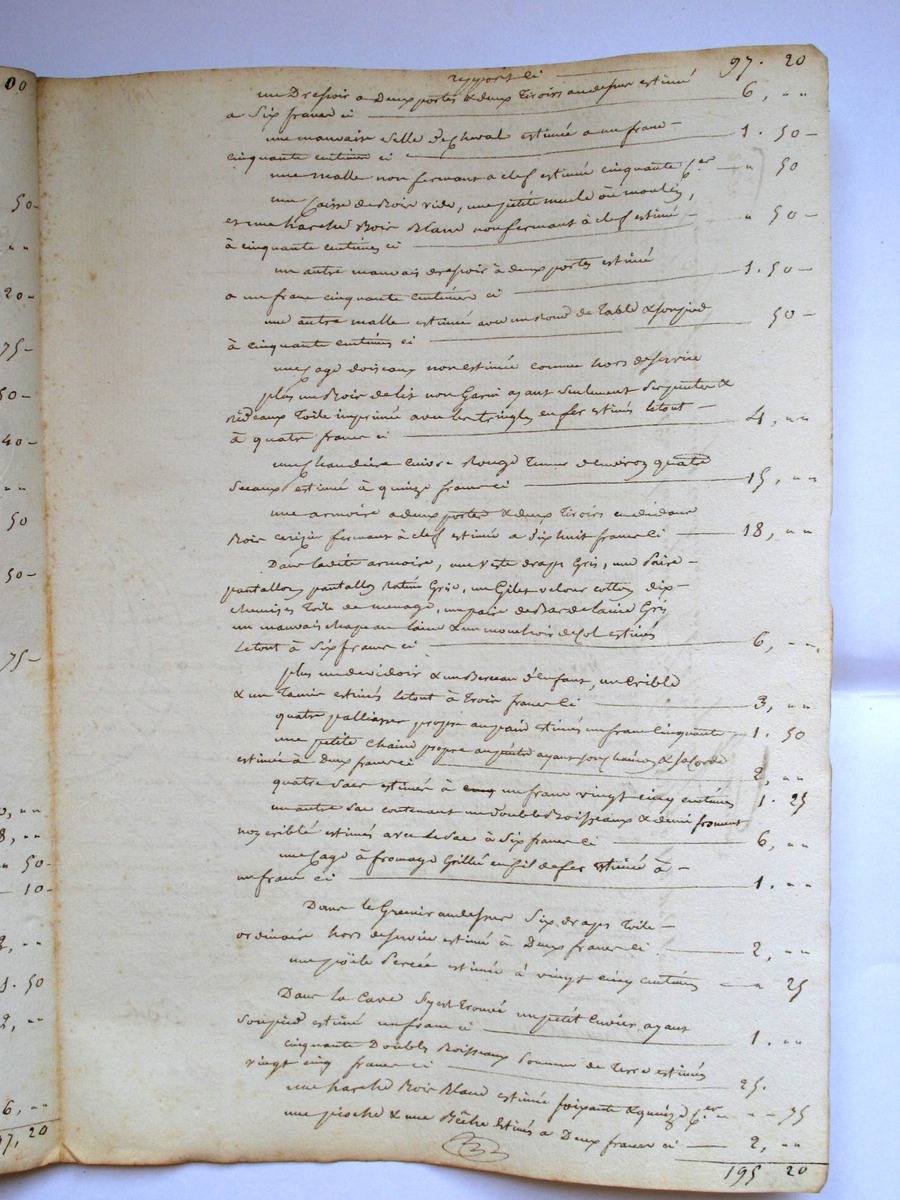 00
50-
" "
20-
75-
50-
40-
" "
50
50-
75-
0, " "
8, " "
" 50-
10-
2, " "
1. 50
2, " "
6, " "
97, 20
report ci 97. 20
un Dressoir a Deux portes & deux Tiroirs au dessus estimé
a Six francs ci 6, " "
une mauvaise Selle de cheval estimée a un franc -
cinquante centimes ci 1. 50-
une malle non fermant a clef estimée cinquante c.er " 50
une caisse de Bois vide, une petite meule ou moulin,
et une harche Bois Blanc non fermant à clef estimé -
à cinquante centimes ci " 50-
un autre mauvais dressoir à deux portes estimé
a un franc cinquante centimes ci 1. 50-
une autre malle estimée avec un rond de Table & son pied
à cinquante centimes ci 50-
une cage doiseaux non estimée comme hors de service
plus un Bois de lit non Garni ayant seulement Serpentes &
Rideaux Toile imprimé avec les tringles en fer estimés letout -
à quatre francs ci 4, " "
une Chaudière cuivre Rouge Tenue denviron quatre
Seceaux estimée à quinze francs ci 15, " "
une armoire a deux portes & deux Tiroirs en dedans
Bois cerizier fermant à clef estimée a Dix huit francs ci 18, " "
Dans ladite armoire, une veste drape Gris, une paire
pantallon pantallon ratine Gris, un Gilet velour cotton dix -
chemises Toile de menage, un paire de Bas de laine Gris
un mauvais chapeau laine & un mouchoir de col estimés
Letout à Six francs ci 6, " "
plus un devidoir & un Berceau d'enfant, un Crible
& un Tamis estimés letout à Trois francs ci 3, " "
quatre palliasses propre au pain estimés un franc Cinquante 1. 50
une petite Chaine propre au puits ayant son chainon & sa Corde
estimée à deux francs ci 2, " "
quatre Sacs estimés à un franc vingt cinq centimes 1. 25
un autre Sac contenant un Double Boisseaux & demi froment
non criblé estimés avec le Sac à Six francs ci 6, " "
une Cage à fromage Grillé en fil de fer Estimée à -
un franc ci 1. " "
Dans le Grenier au dessus Six draps Toile -
ordinaire hors de service estimé à Deux francs ci 2, " "
une poële Percée estimée à vingt cinq centimes " 25
Dans la Cave S'y est Trouvé un petit Cuvier ayant
Son pied estimé un franc ci 1. " "
cinquante Doubles Boisseaux Pommes de Terre estimés
vingt cinq francs ci 25.
une harche Bois Blanc estimée soixante & quinze c.er " 75
une pioche & une Bêche Estimés a Deux francs ci 2, " "
195 20